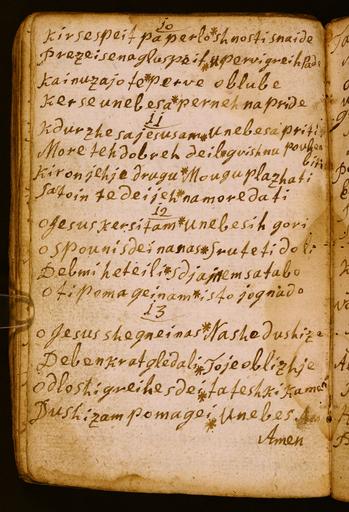 10
Kir se speit pa perlo*shnosti snaide
Prezei se na glus peit*v pervi greih pade
Ka inu za jo to*perve oblube
Ker se v nebesa*per neh na pride
11
K durzhe sa jesusam*v nebesa priti
More teh dobreh deil*gvishnu
biti
Kir on je hje drugu*Mougu plazhati
Sato in te deijeh*na more dati
12
O Jesus ker si tam*v nebesih gori
O spouni s dei na nas*S ruteti doli
De b mi heteili*s dja nemsa tabo
O ti pomagei nam*is to jo gnado
13
O Jesus shegnei nas*Nashe dushize
De ben krat gledali*Toje oblizhje
Odlosti greihe s dei*ta teshki kamen
Dushizam pomagei*v Nebes
Amen